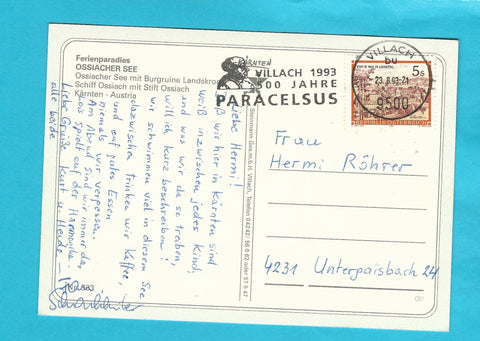 Ferienparadies
OSSIACHER SEE
Ossiacher See mit Burgruine Landskron
Schiff Ossiach mit Stift Ossiach
Kärnten - Austria
KÄRNTEN
VILLACH 1993
500 JAHRE
PARACELSUS
VILLACH
bu
-23.8.93-21
9500
5s
REPUBLIK ÖSTERREICH
Liebe Hermi!
Daß wir hier in Kärnten sind
weiß inzwischen jedes Kind,
und was wir da so treiben,
will ich kurz beschreiben!
Wir schwimmen viel in diesem See
dazwischen trinken wir Kaffee,
und auf gutes Essen
niemals wir vergessen.
Am Abend sind wir immer da,
was spielt auf der Harmonika.
Liebe Grüße Kurt u.
alle beide
Ges.m.b.H. Villach, Telefon 04242/
Frau
Hermi Röhrer
4231 Unterpaisbach 24